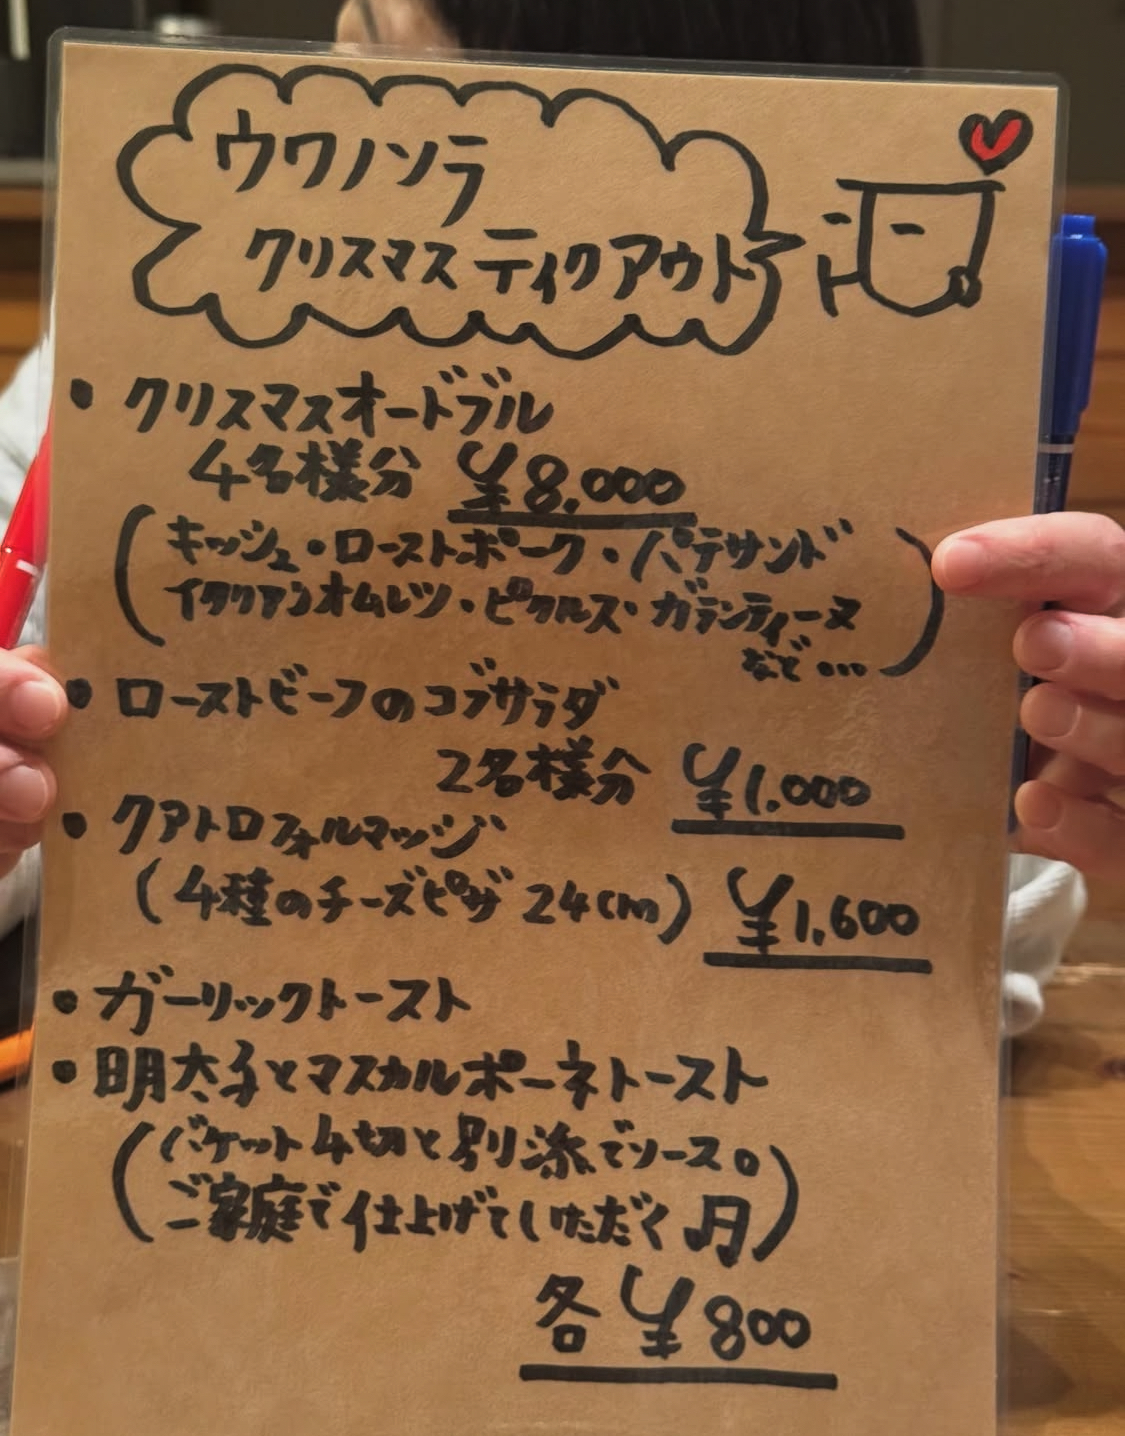 ウワノソラ
クリスマス ティクアウト
・クリスマスオードブル
4名様分 ¥8,000
(キッシュ・ローストポーク・パテサンド
イタリアンオムレツ・ピクルス・ガランティーヌ
など…)
・ローストビーフのコブサラダ
2名様分 ¥1,000
・クアトロフォルマッジ
(4種のチーズピザ 24cm) ¥1,600
・ガーリックトースト
・明太子とマスカルポーネトースト
(バケット4切と別添でソース。
ご家庭で仕上げていただく)
各 ¥800